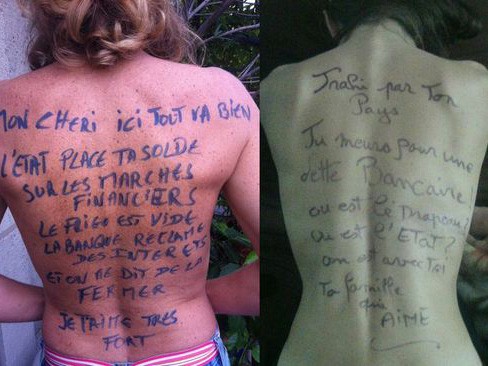 MON CHERI ICI TOUT VA BIEN
L'ETAT PLACE TA SOLDE
SUR LES MARCHES
FINANCIERS
LE FRIGO EST VIDE
LA BANQUE RECLAME
DES INTERETS
ET ON ME DIT DE LA
FERMER
JE T'AIME TRES
FORT
Trahi par Ton
Pays
Tu meurs pour une
dette Bancaire!
ou est le Drapeau?
ou est l'ETat?
on est avec toi
Ta famille
qui
AIME